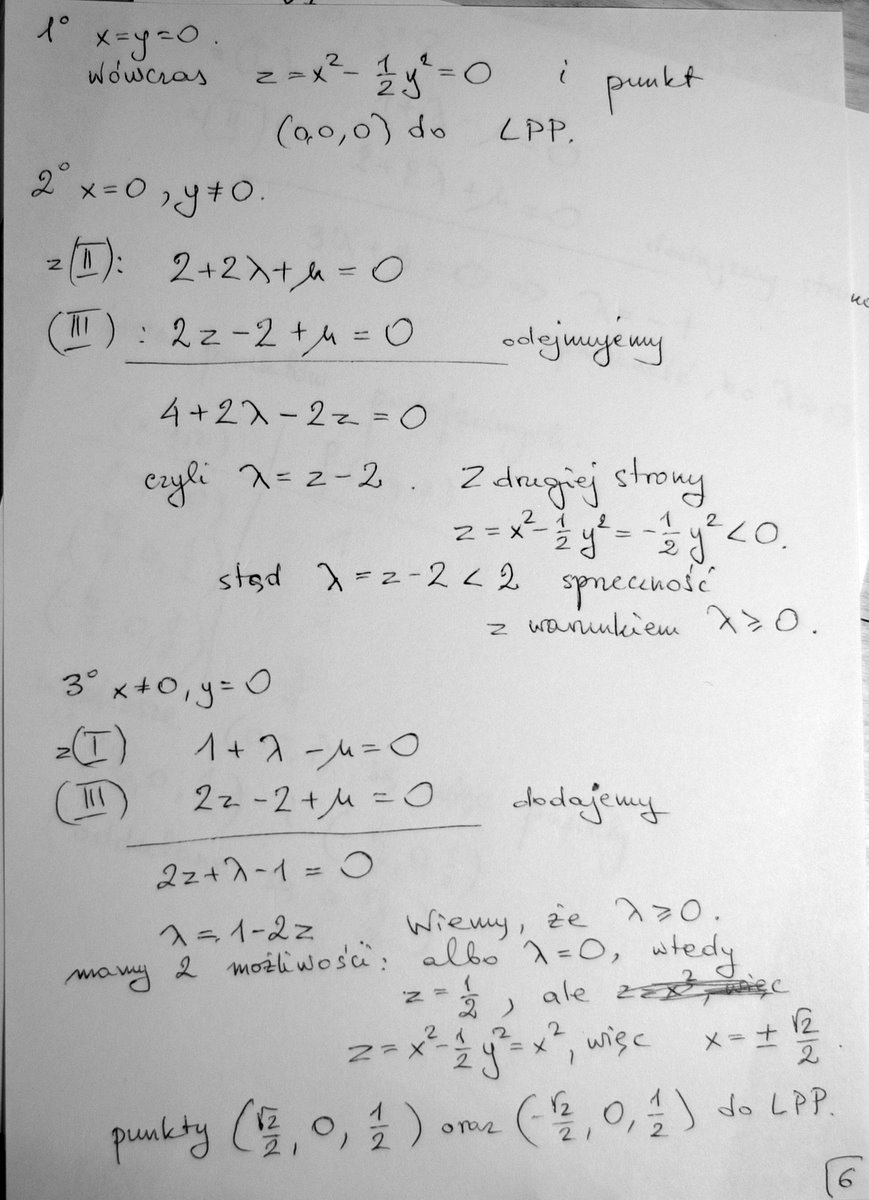 1° x=y=0.
wówczas z=x²-½y²=0 i punkt
(0,0,0) do LPP.
2° x=0, y≠0.
z(II): 2+2λ+μ=0
(III): 2z-2+μ=0 odejmujemy
4+2λ-2z=0
czyli λ=z-2. Z drugiej strony
z=x²-½y²=-½y²<0.
stąd λ=z-2<2 sprzeczność
z warunkiem λ≥0.
3° x≠0, y=0
z(I) 1+λ-μ=0
(III) 2z-2+μ=0 dodajemy
2z+λ-1=0
λ=1-2z Wiemy, że λ≥0.
mamy 2 możliwości: albo λ=0, wtedy
z=½, ale z=x², więc
z=x²-½y²=x², więc x=±√2/2.
punkty (√2/2, 0, ½) oraz (-√2/2, 0, ½) do LPP.
6